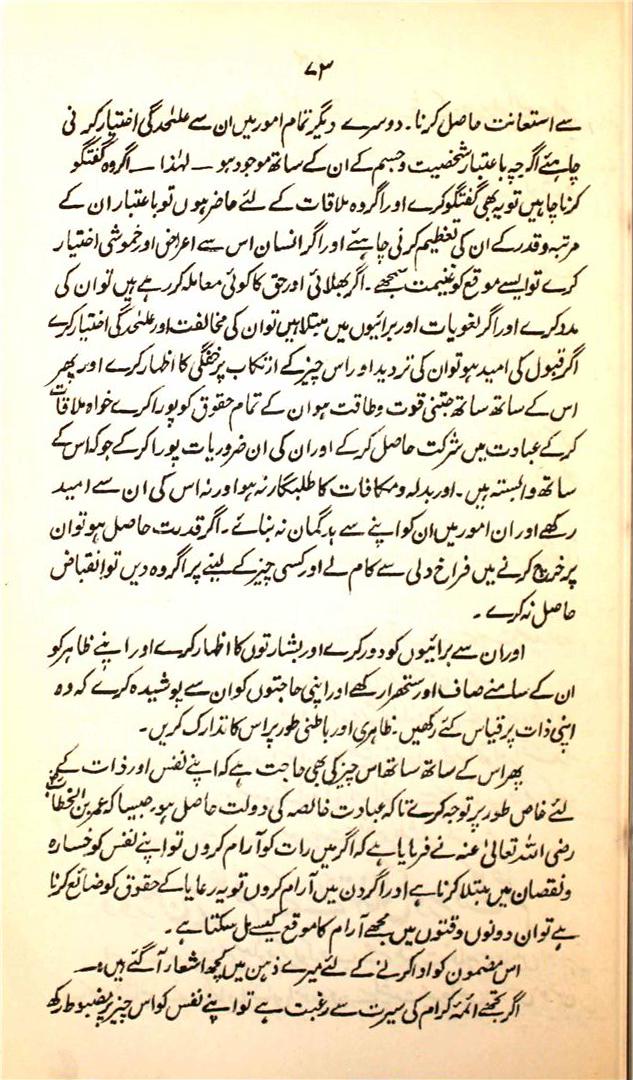 ۷۳
سے استعانت حاصل کرنا۔ دوسرے دیگر تمام امور میں ان سے علیٰحدگی اختیار کر نی
چاہیئے اگرچہ باعتبار شخصیت و جسم کے ان کے ساتھ موجود ہو — لہٰذا — اگر وہ گفتگو
کرنا چاہیں تو یہ بھی گفتگو کرے اور اگر وہ ملاقات کے لئے حاضر ہوں تو باعتبار ان کے
مرتبہ و قدر کے ان کی تعظیم کرنی چاہیئے اور اگر انسان اس سے اعراض اور خموشی اختیار
کرے تو ایسے موقع کو غنیمت سمجھے۔ اگر بھلائی اور حق کا کوئی معاملہ کر رہے ہیں تو ان کی
مدد کرے اور اگر لغویات اور برائیوں میں مبتلا ہیں تو ان کی مخالفت اور علیٰحدگی اختیار کرے
اگر قبول کی امید ہو تو ان کی تردید اور اس چیز کے ارتکاب پر خفگی کا اظہار کرے اور پھر
اس کے ساتھ ساتھ جتنی قوت و طاقت ہو ان کے تمام حقوق کو پورا کرے خواہ ملاقات
کر کے عبادت میں شرکت حاصل کر کے اور ان کی ان ضروریات پورا کر کے جو کہ اس کے
ساتھ وابستہ ہیں۔ اور بدلہ و مکافات کا طلبگار نہ ہو اور نہ اس کی ان سے امید
رکھے اور ان امور میں ان کو اپنے سے بدگمان نہ بنائے۔ اگر قدرت حاصل ہو تو ان
پر خرچ کرنے میں فراخ دلی سے کام لے اور کسی چیز کے لینے پر اگر وہ دیں تو انقباض
حاصل نہ کرے۔
اور ان سے برائیوں کو دور کرے اور بشارتوں کا اظہار کرے اور اپنے ظاہر کو
ان کے سامنے صاف اور ستھرا رکھے اور اپنی حاجتوں کو ان سے پوشیدہ کرے کہ وہ
اپنی ذات پر قیاس کئے رکھیں۔ ظاہری اور باطنی طور پر اس کا تدارک کریں۔
پھر اس کے ساتھ ساتھ اس چیز کی بھی حاجت ہے کہ اپنے نفس اور ذات کے
لئے خاص طور پر توجہ کرے تاکہ عبادت خالصہ کی دولت حاصل ہو جیسا کہ عمر بن الخطاب
رضی اللہ تعالیٰ عنہ نے فرمایا ہے کہ اگر میں رات کو آرام کروں تو اپنے نفس کو خسارہ
و نقصان میں مبتلا کرنا ہے اور اگر دن میں آرام کروں تو یہ رعایا کے حقوق کو ضائع کرنا
ہے تو ان دونوں وقتوں میں مجھے آرام کا موقع کیسے مل سکتا ہے۔
اس مضمون کو ادا کرنے کے لئے میرے ذہن میں کچھ اشعار آ گئے ہیں؎
اگر تجھے ائمہ کرام کی سیرت سے رغبت ہے تو اپنے نفس کو اس چیز پر مضبوط رکھ